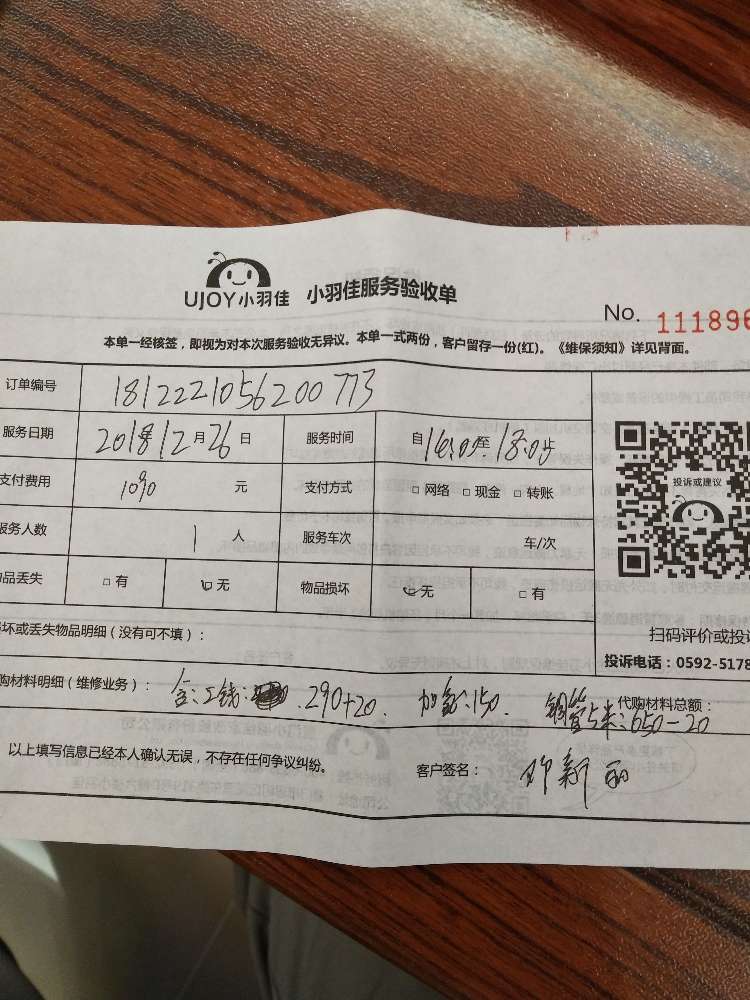 UJOY小羽佳 小羽佳服务验收单
No. 111896
本单一经核签，即视为对本次服务验收无异议。本单一式两份，客户留存一份(红)。《维保须知》详见背面。
订单编号 1812221056200773
服务日期 2018年12月26日 服务时间 自14:05至18:05止
支付费用 1090 元 支付方式 □ 网络 □ 现金 □ 转账
服务人数 1 人 服务车次 车/次
品丢失 □ 有 ☑ 无 物品损坏 ☑ 无 □ 有
投诉或建议
坏或丢失物品明细（没有可不填）：
扫码评价或投诉
投诉电话：0592-5178
购材料明细（维修业务）： 工钱： 290+20 加氟：150 铜管5米：650-20 代购材料总额：
以上填写信息已经本人确认无误，不存在任何争议纠纷。 客户签名： 新丽